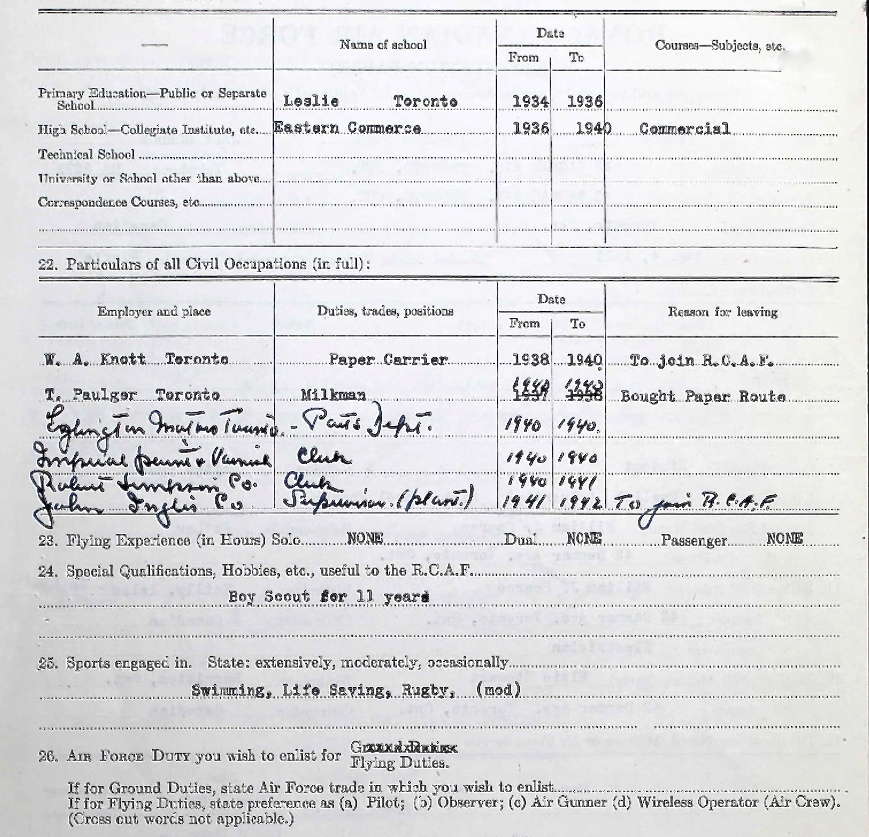 Name of school Date Courses—Subjects, etc.
From To
Primary Education—Public or Separate
School Leslie Toronto 1934 1936
High School—Collegiate Institute, etc. Eastern Commerce 1936 1940 Commercial
Technical School
University or School other than above
Correspondence Courses, etc
22. Particulars of all Civil Occupations (in full):
Employer and place Duties, trades, positions Date Reason for leaving
From To
W. A. Knott Toronto Paper Carrier 1938 1940 To join R.C.A.F.
1940 1940
T. Paulger Toronto Milkman 1937 1938 Bought Paper Route
Eglington Motors Toronto - Parts Dept. 1940 1940
Imperial paint & Varnish Clerk 1940 1940
Robert Simpson Co. Clerk 1940 1941
John Inglis Co Supervisor (plant) 1941 1942 To join R.C.A.F.
23. Flying Experience (in Hours) Solo NONE Dual NONE Passenger NONE
24. Special Qualifications, Hobbies, etc., useful to the R.C.A.F.
Boy Scout for 11 years
25. Sports engaged in. State: extensively, moderately, occasionally
Swimming, Life Saving, Rugby, (mod)
26. AIR FORCE DUTY you wish to enlist for Ground Duties
Flying Duties.
If for Ground Duties, state Air Force trade in which you wish to enlist
If for Flying Duties, state preference as (a) Pilot; (b) Observer; (c) Air Gunner (d) Wireless Operator (Air Crew).
(Cross out words not applicable.)